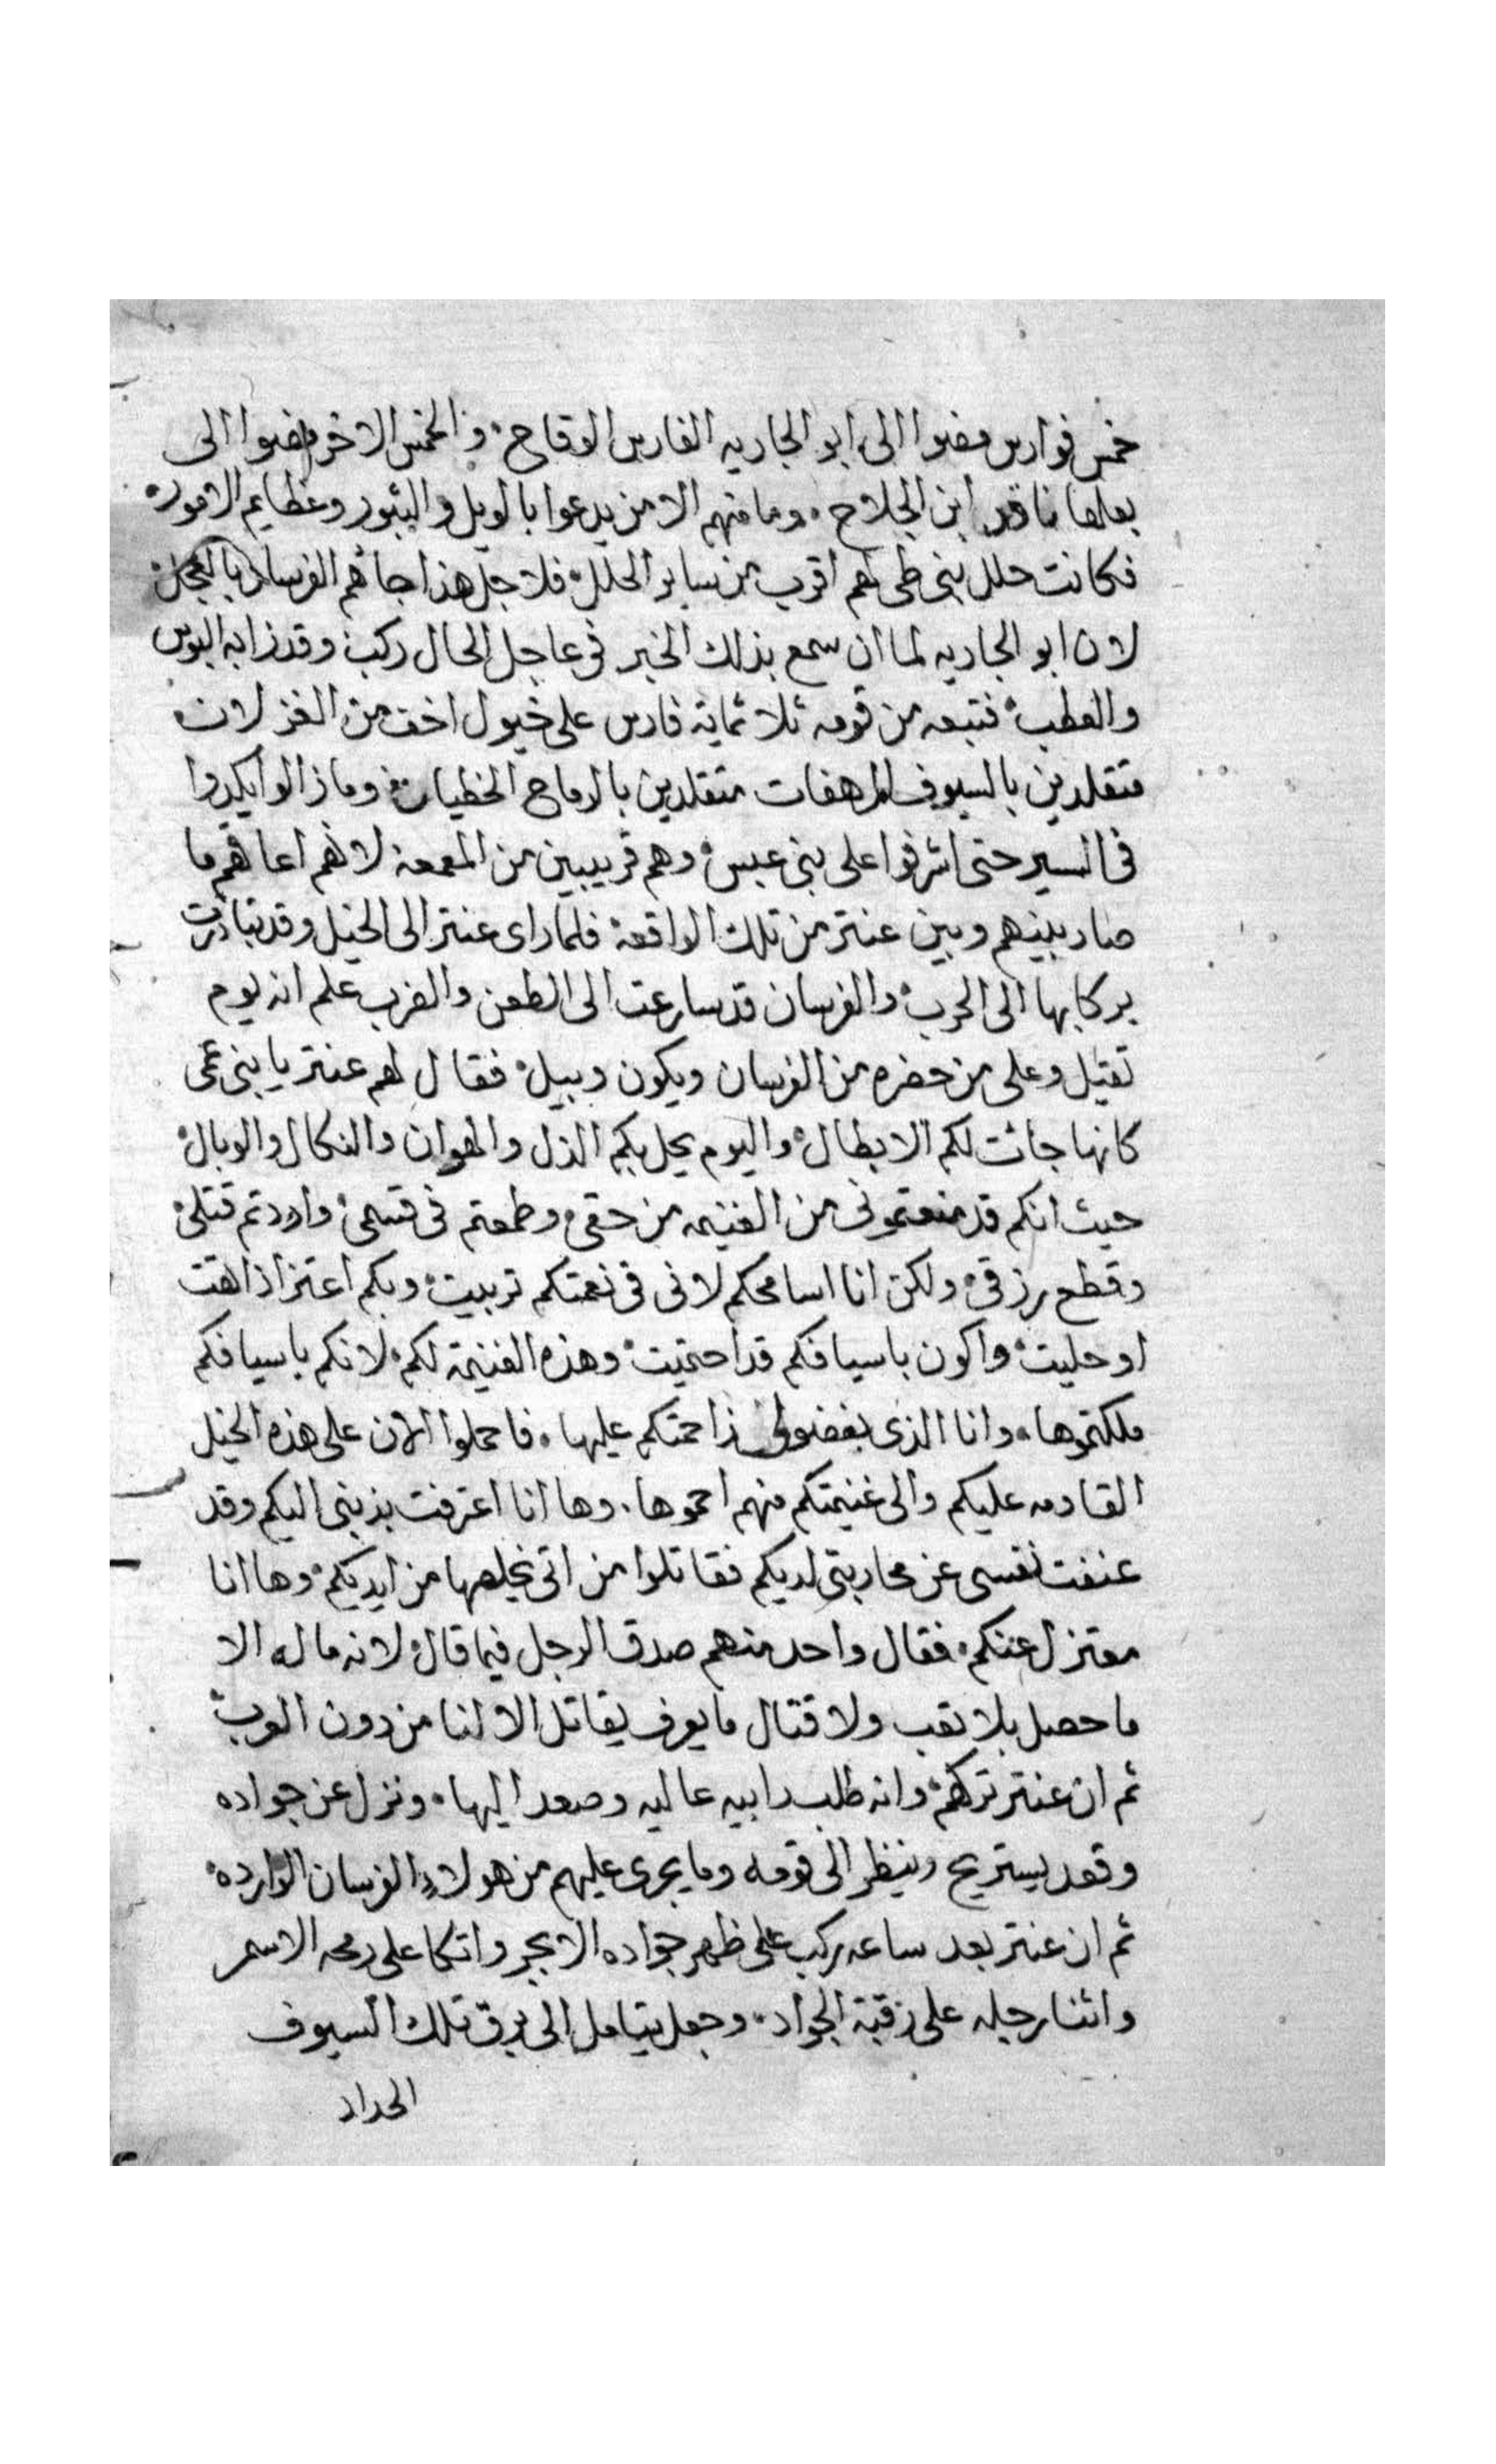 خمس فوارس مضوا الى ابو الجاريه الفارس الوقاح. والخمس الاخر مضوا الى
بعلها ناقد ابن الجلاح. وما منهم الا من يدعوا بالويل والثبور وعظايم الامور.
فكانت حلل بنى طى لهم اقرب من ساير الحلل. فلاجل هذا جائهم الفرسان بالعجل.
لان ابو الجاريه لما ان سمع بذلك الخبر فى عاجل الحال ركب وقد زابه البوس
والعطب. فتبعه من قومه ثلاثماية فارس على خيول اخف من الغزلان.
متقلدين بالسيوف المرهفات متقلدين بالرماح الخطيات. وما زالوا يكدوا
فى السير حتى اشرفوا على بنى عبس. وهم قريبين من المعمعة لانهم اعاقهم ما
صار بينهم وبين عنتر من تلك الواقعة فلما راى عنتر الى الخيل وقد تبادرت
بركابها الى الحرب. والفرسان قد سارعت الى الطعن والضرب علم انه يوم
ثقيل وعلى من حضره من الفرسان ويكون وبيل. فقال لهم عنتر يا بنى عمى
كانها جائت لكم الابطال. واليوم يحل بكم الذل والهوان والنكال والوبال.
حيث انكم قد منعتمونى من الغنيمه من حقى. وطمعتم فى قسمى. واردتم قتلى.
وقطع رزقى. ولكن انا اسامحكم لانى فى نعمتكم تربيت. وبكم اعتز اذا اقمت
او حليت. واكون باسيافكم قد احتميت. وهذه الغنيمة لكم. لانكم باسيافكم
ملكتموها. وانا الذى بفضولى زاحمتكم عليها. فاحملوا الان على هذه الخيل
القادمه عليكم والى غنيمتكم منهم احموها. وها انا اعترفت بذنبى اليكم وقد
عنفت نفسى عن محاربتى لديكم فقاتلوا من اتى يخلصها من ايديكم. وها انا
معتزل عنكم. فقال واحد منهم صدق الرجل فيما قال. لانه ماله الا
ما حصل بلا تعب ولا قتال ما يعرف يقاتل الا لنا من دون العرب
ثم ان عنتر تركهم. وانه طلب رابيه عاليه وصعد اليها. ونزل عن جواده
وقعد يستريح وينظر الى قومه وما يجرى عليهم من هولاء الفرسان الوارده.
ثم ان عنتر بعد ساعه ركب على ظهر جواده الابجر واتكا على رمحه الاسمر
واثنا رجله على رقبة الجواد. وجعل يتامل الى برق تلك السيوف
الحداد